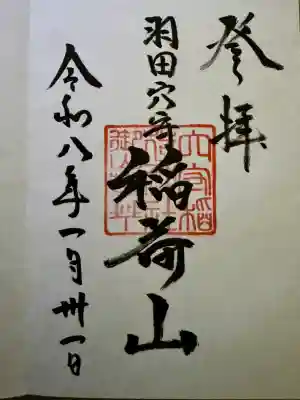 登拝
羽田穴守
稲荷山
令和八年一月卅一日
穴守稲